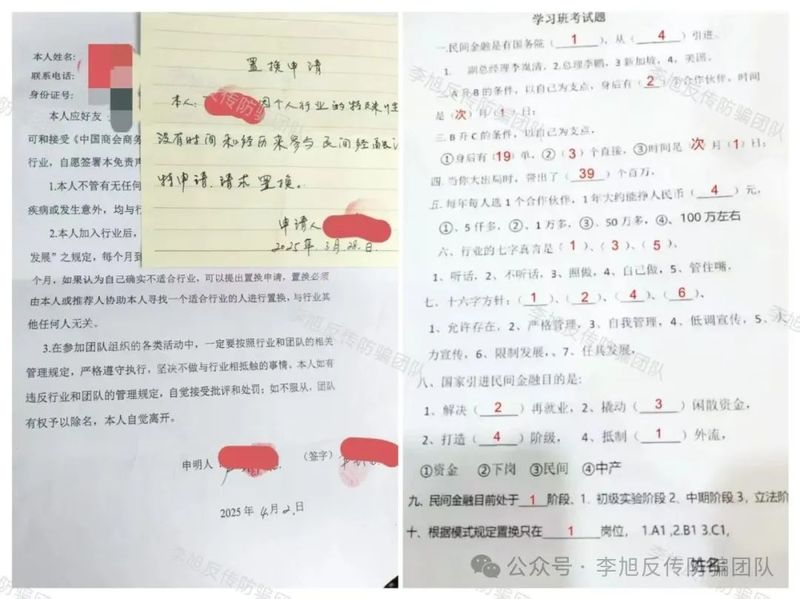 本人姓名:
联系电话:
身份证号:
本人应好友
可和接受《中国商会商务
行业，自愿签署本免责声
1.本人不管有无任何
疾病或发生意外，均与行
2.本人加入行业后，
发展”之规定，每个月到
个月，如果认为自己确实不适合行业，可以提出置换申请，置换必须
由本人或推荐人协助本人寻找一个适合行业的人进行置换，与行业其
他任何人无关。
3.在参加团队组织的各类活动中，一定要按照行业和团队的相关
管理规定，严格遵守执行，坚决不做与行业相抵触的事情。本人如有
违反行业和团队的管理规定，自觉接受批评和处罚；如不服从，团队
有权予以除名，本人自觉离开。
申明人：
（签字）
2025年4月2日
置换申请
本人: 因个人行业的特殊性
没有时间和经历来参与民间经融
特申请.请求置换。
申请人
2025年3月28日.
学习班考试题
一.民间金融是有国务院（ 1 ），从（ 4 ）引进。
1. 副总经理李岚清，2.总理李鹏，3 新加坡，4、美国。
二 A 升 B 的条件，以自己为支点，身后有（ 2 ）个合作伙伴，时间
是（次）月（1）日；
三 B 升 C 的条件，以自己为支点，
①身后有（19）单，②（3）个直接，③时间是 次 月（1）日；
四.当你大出局时，带出了（ 39 ）个百万。
五.每年每人选 1 个合作伙伴，1 年大约能挣人民币（ 4 ）元，
①、5仟多，②、1 万多，③、50 万多，④、100 万左右
六、行业的七字真言是（ 1 ）、（ 3 ）、（ 5 ）、
1、听话，2、不听话，3、照做，4、自己做，5、管住嘴，
七、十六字方针：（ 1 ）、（ 2 ）、（ 4 ）、（ 6 ）、
1、允许存在，2、严格管理，3、自我管理，4、低调宣传，5、大
力宣传，6、限制发展，、7、任其发展，
八、国家引进民间金融目的是:
1、解决（ 2 ）再就业，2、撬动（ 3 ）闲散资金，
2、打造（ 4 ）阶级， 4、抵制（ 1 ）外流，
①资金 ②下岗 ③民间 ④中产
九、民间金融目前处于 1 阶段、1. 初级实验阶段 2、中期阶段 3，立法阶
十、根据模式规定置换只在 1 岗位， 1.A1 ,2.B1 3.C1,
姓名
公众号·李旭反传防骗团队
李旭反传防骗团队